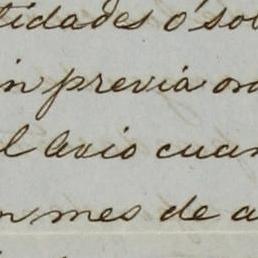 tidades ó sob
in previa ord
l avio cuan
n mes de a